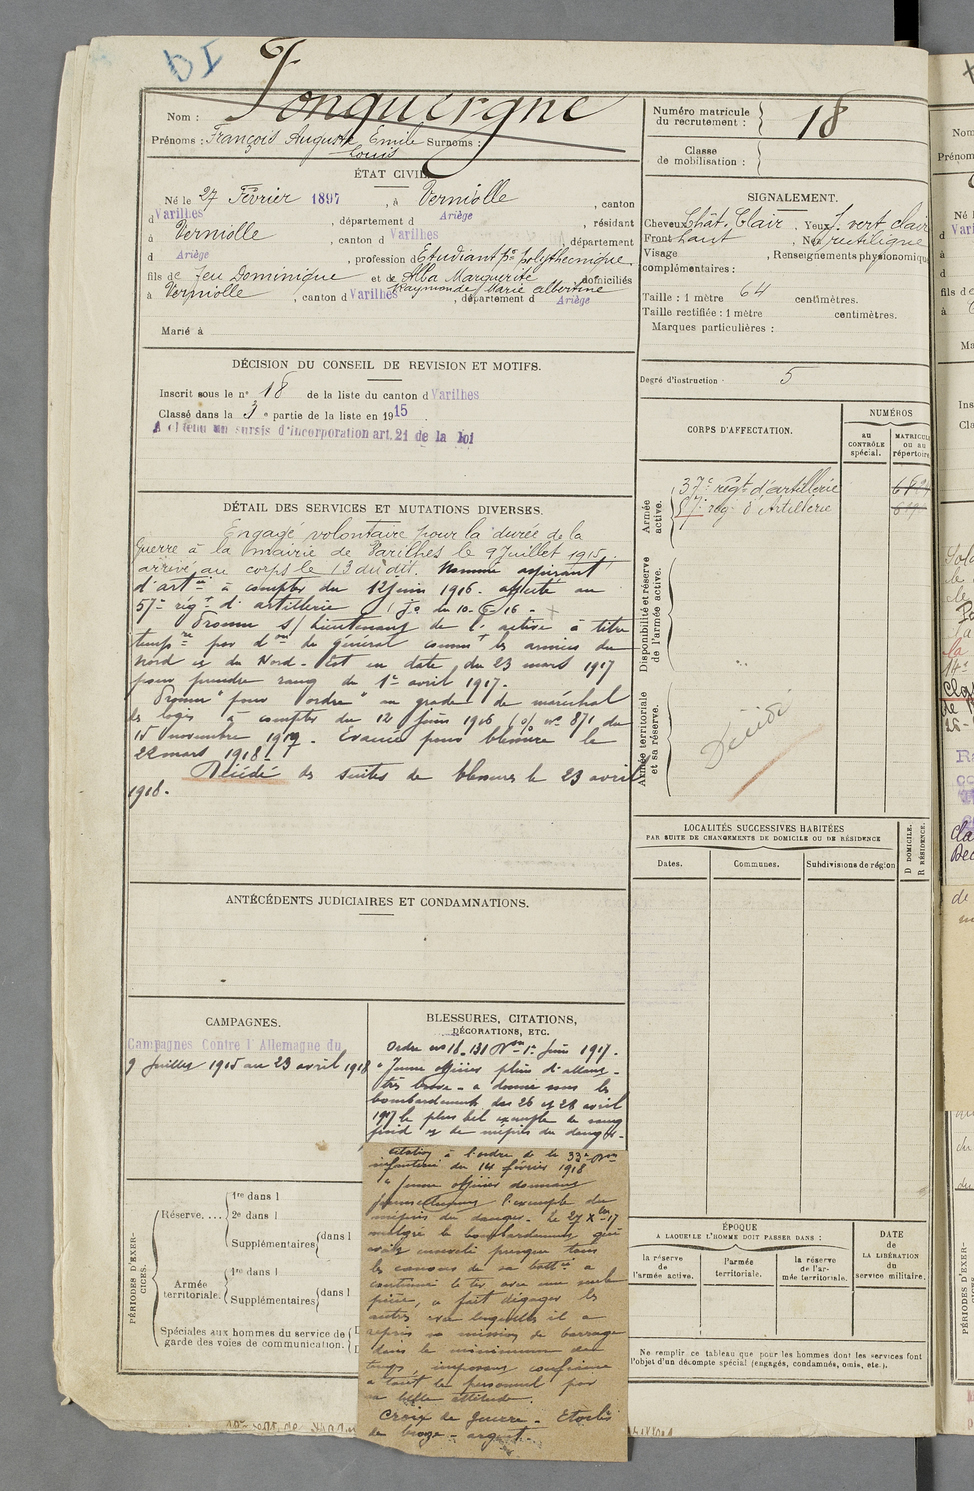 Jonquergne
Nom :
Prénoms : François Auguste Emile Surnoms :
Louis
Numéro matricule
du recrutement :
18
Classe
de mobilisation :
ÉTAT CIVIL
Né le 27 Février 1897, à Verniolle, canton
d Varilhes, département d Ariège, résidant
à Verniolle, canton d Varilhes, département
d Ariège, profession d Etudiant pre polythecnique
fils de feu Dominique et de Alba Marguerite domiciliés
Raymonde Marie Albertine
à Verniolle, canton d Varilhes, département d Ariège
Marié à
SIGNALEMENT.
Cheveux Chât. Clair. Yeux vert clair
Front haut, Nez rectiligne
Visage, Renseignements physionomiqu
complémentaires :
Taille : 1 mètre 64 centimètres.
Taille rectifiée : 1 mètre centimètres.
Marques particulières :
Degré d'instruction : 5
DÉCISION DU CONSEIL DE REVISION ET MOTIFS.
Inscrit sous le n° 18 de la liste du canton d Varilhes
Classé dans la 3e partie de la liste en 1915
A obtenu un sursis d'incorporation art. 21 de la loi
CORPS D'AFFECTATION.
NUMÉROS
au
CONTRÔLE
spécial.
MATRICULE
ou au
répertoire
Armée
active.
37e régt d'artillerie
57e rég. d'Artillerie
Disponibilité et réserve
de l'armée active.
Armée territoriale
et sa réserve.
Décédé
DÉTAIL DES SERVICES ET MUTATIONS DIVERSES.
Engagé volontaire pour la durée de la
Guerre à la mairie de Varilhes le 9 Juillet 1915.
arrivé au corps le 13 du dit. Nommé aspirant
d'artie à compter du 12 juin 1916. affecté au
57e régt d'artillerie (Jo du 10-6-16 -
Promu s/ Lieutenant de l' active à titre
tempre par don du général commt les armées du
Nord et du Nord-Est en date du 23 mars 1917
pour prendre rang du 1er avril 1917.
Promu "pour ordre" au grade de maréchal
des logis à compter du 12 juin 1916 (o/ n° 871 du
15 novembre 1917. Evacué pour blessure le
22 mars 1918.
Décédé des suites de blessures le 23 avril
1918.
LOCALITÉS SUCCESSIVES HABITÉES
PAR SUITE DE CHANGEMENTS DE DOMICILE OU DE RÉSIDENCE
Dates.
Communes.
Subdivisions de région
D DOMICILE.
R RÉSIDENCE.
ANTÉCÉDENTS JUDICIAIRES ET CONDAMNATIONS.
CAMPAGNES.
Campagnes Contre l'Allemagne du
9 Juillet 1915 au 23 avril 1918
BLESSURES, CITATIONS,
DÉCORATIONS, ETC.
Ordre no 18.131 1er Juin 1917.
"Jeune officier plein d'allant -
très brave - a donné sous les
bombardements des 26 et 28 avril
1917 le plus bel exemple de sang
froid et de mépris du danger -
Citation à l'ordre de la 33e Don
infanterie du 14 février 1918
"Jeune officier donnant
l'exemple du
mépris du danger - Le 27 Xbre 17
malgré le bombardement qui
avait enseveli presque tous
les canons de sa battie a
continué le tir avec une seule
pièce, a fait dégager les
autres avec lesquelles il a
repris sa mission de barrage
dans le minimum de
temps, imposant confiance
à tout le personnel par
sa belle attitude.
Croix de guerre - Etoiles
de bronze - argent -
PÉRIODES D'EXER-
CICES.
Réserve....
1re dans l
2e dans l
Supplémentaires dans l
Armée
territoriale.
1re dans l
Supplémentaires dans l
Spéciales aux hommes du service de
garde des voies de communication.
ÉPOQUE
A LAQUELLE L'HOMME DOIT PASSER DANS :
la réserve
de
l'armée active.
l'armée
territoriale.
la réserve
de l'ar-
mée territoriale.
DATE
de
LA LIBÉRATION
du
service militaire.
Ne remplir ce tableau que pour les hommes dont les services font
l'objet d'un décompte spécial (engagés, condamnés, omis, etc.).